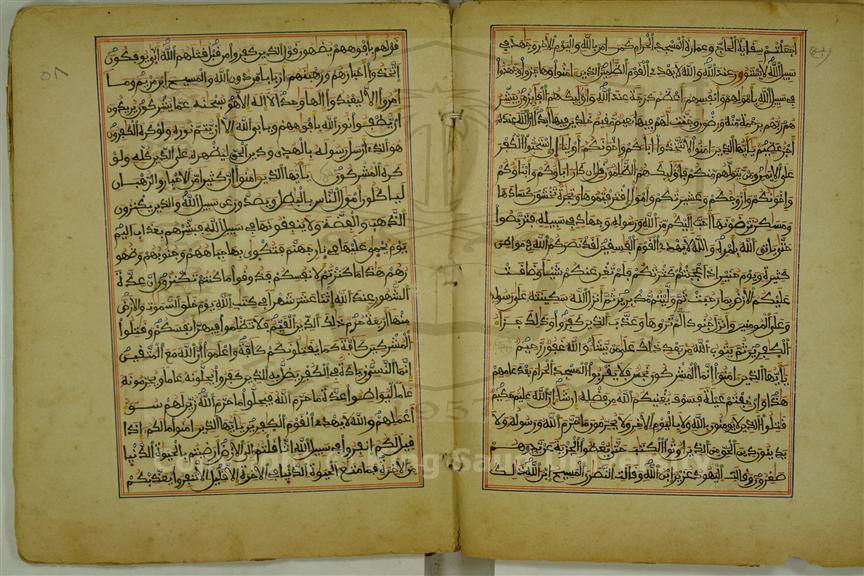 اجعلتم سقاية الحاج وعمارة المسجد الحرام كمن امن بالله واليوم الاخر وجهد في
سبيل الله لا يستون عند الله والله لا يهدي القوم الظلمين الذين امنوا وهاجروا وجهدوا
في سبيل الله باموالهم وانفسهم اعظم درجة عند الله واوليك هم الفايزون يبشر
هم ربهم برحمة منه ورضون وجنت لهم فيها نعيم مقيم خلدين فيها ابدا ان الله عنده
اجر عظيم يايها الذين امنوا لا تتخذوا اباكم واخونكم اوليا ان استحبوا الكفر
على الايمن ومن يتولهم منكم فاوليك هم الظلمون قل ان كان اباوكم وابناوكم
واخونكم وازوجكم وعشيرتكم واموال اقترفتموها وتجرة تخشون كسادها
ومسكن ترضونها احب اليكم من الله ورسوله وجهاد في سبيله فتربصوا
حتى ياتي الله بامره والله لا يهدي القوم الفسقين لقد نصركم الله في مواطن
كثيرة ويوم حنين اذ اعجبتكم كثرتكم فلم تغن عنكم شيا وضاقت
عليكم الارض بما رحبت ثم وليتم مدبرين ثم انزل الله سكينته على رسوله
وعلى المومنين وانزل جنودا لم تروها وعذب الذين كفروا وذلك جزاء
الكفرين ثم يتوب الله من بعد ذلك على من يشاء والله غفور رحيم
يايها الذين امنوا انما المشركون نجس فلا يقربوا المسجد الحرام بعد عامهم
هذا وان خفتم عيلة فسوف يغنيكم الله من فضله ان شاء ان الله عليم حكيم
قتلوا الذين لا يومنون بالله ولا باليوم الاخر ولا يحرمون ما حرم الله ورسوله ولا
يدينون دين الحق من الذين اوتوا الكتب حتى يعطوا الجزية عن يد وهم
صغرون وقالت اليهود عزير ابن الله وقالت النصرى المسيح ابن الله ذلك
قولهم بافوههم يضهون قول الذين كفروا من قبل قتلهم الله انى يوفكون
اتخذوا احبارهم ورهبنهم اربابا من دون الله والمسيح ابن مريم وما
امروا الا ليعبدوا الها وحدا لا اله الا هو سبحنه عما يشركون يريدون
ان يطفوا نور الله بافوههم ويابى الله الا ان يتم نوره ولو كره الكفرون
هو الذي ارسل رسوله بالهدى ودين الحق ليظهره على الدين كله ولو
كره المشركون يايها الذين امنوا ان كثيرا من الاحبار والرهبان
لياكلون امول الناس بالبطل ويصدون عن سبيل الله والذين يكنزون
الذهب والفضة ولا ينفقونها في سبيل الله فبشرهم بعذاب اليم
يوم يحمى عليها في نار جهنم فتكوى بها جباههم وجنوبهم وظهو
رهم هذا ما كنزتم لانفسكم فذوقوا ما كنتم تكنزون ان عدة
الشهور عند الله اثنا عشر شهرا في كتب الله يوم خلق السموت والارض
منها اربعة حرم ذلك الدين القيم فلا تظلموا فيهن انفسكم وقتلوا
المشركين كافة كما يقتلونكم كافة واعلموا ان الله مع المتقين
انما النسي زيادة في الكفر يضل به الذين كفروا يحلونه عاما ويحرمونه
عاما ليواطوا عدة ما حرم الله فيحلوا ما حرم الله زين لهم سو
اعملهم والله لا يهدي القوم الكفرين يايها الذين امنوا ما لكم اذا
قيل لكم انفروا في سبيل الله اثاقلتم الى الارض ارضيتم بالحيوة الدنيا
من الاخرة فما متع الحيوة الدنيا في الاخرة الا قليل الا تنفروا يعذبكم